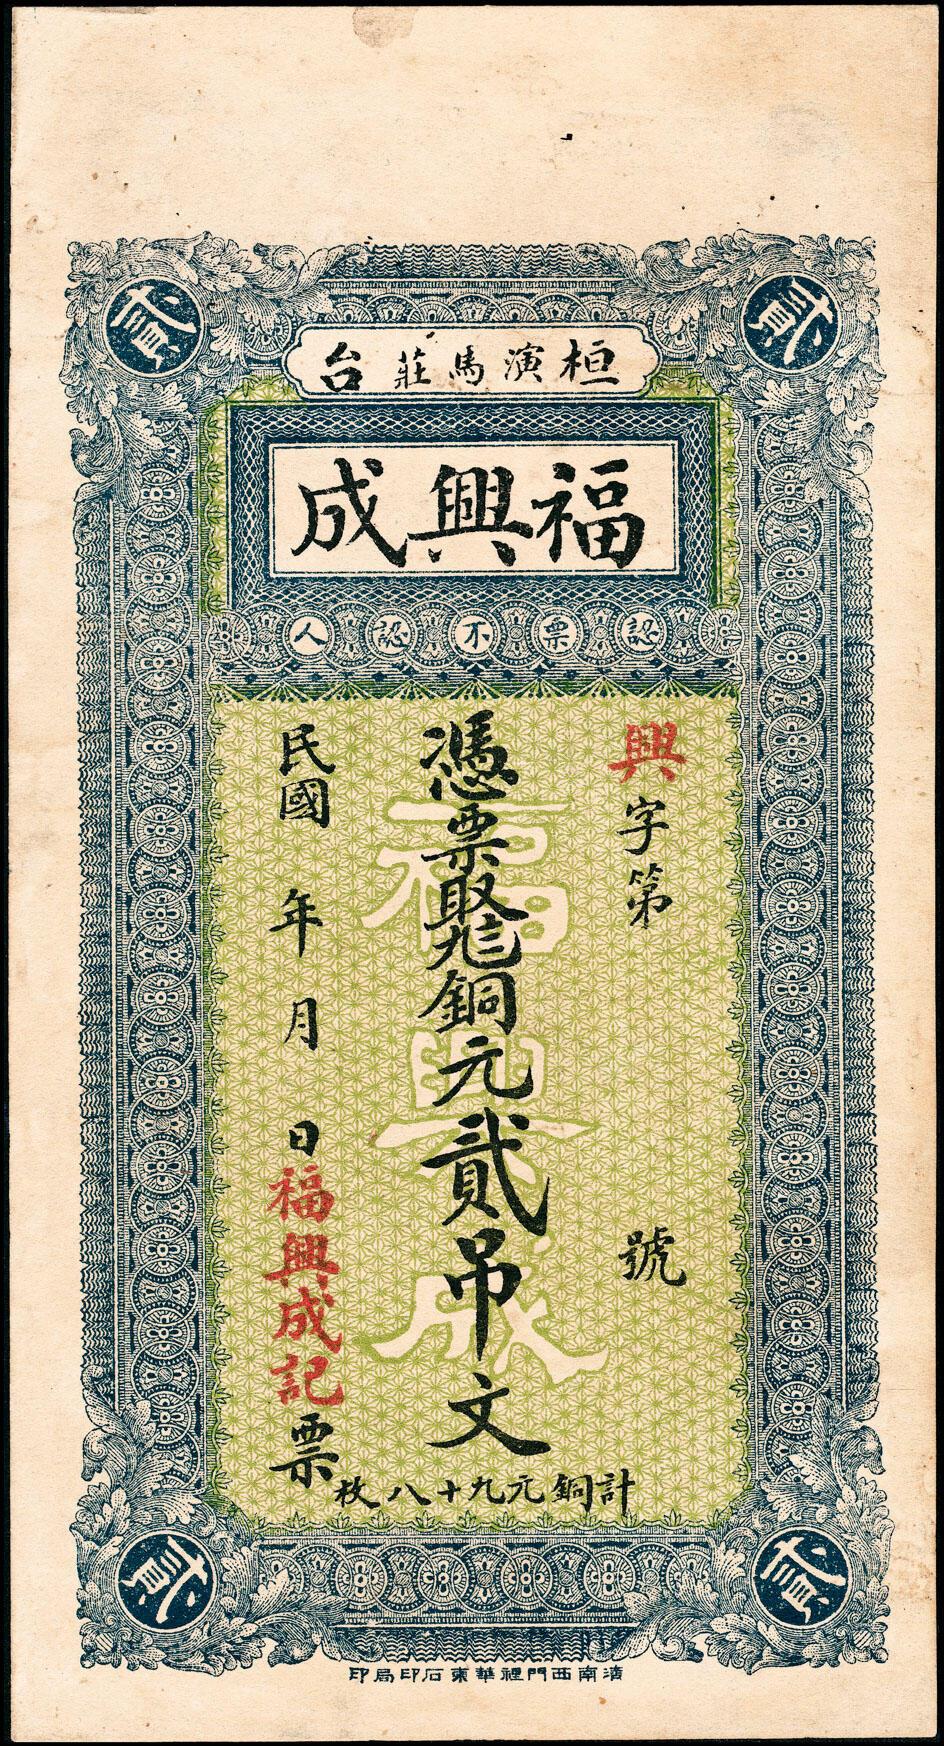 桓演馬莊台
福興成
認票不認人
興字第 號
憑票取九三八銅元貳吊文
民國 年 月 日福興成記票
計銅元九十八枚
濟南西門裡華東石印局印
貳
貳
貳
貳
福興成